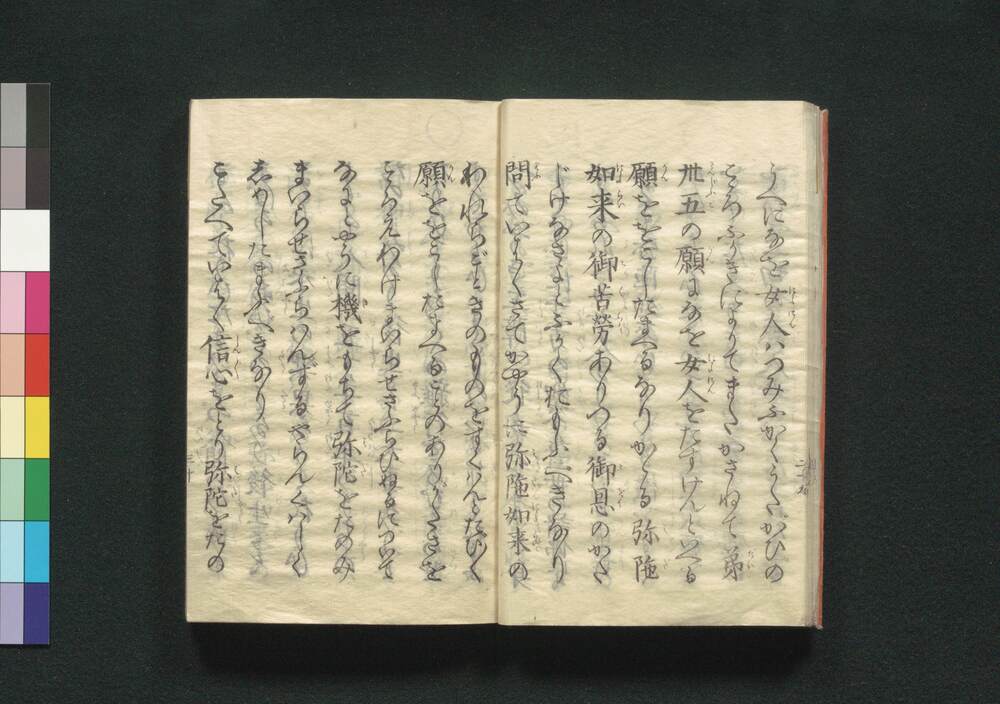 うへになを女人はつみふかくうたがひの
こゝろふかきによりてまたかさねて第
卅五の願になを女人をたすけんといへる
願ををこしたまへるなりかゝる弥陁
如来の御苦労ありつる御恩のかた
じけなさよとふかくおもふべきなり
問ていはくさてかやうに弥陁如来の
われらごときのものをすくはんとたび〳〵
願ををこしたまへることのありがたさを
こゝろえわけまいらせさふらひぬるについて
なにとやうに機をもちて弥陀をたのみ
まいらせさふらはんずるやらんくはしく
しめしたまふべきなり
こたへていはく信心をとり弥陀をたの